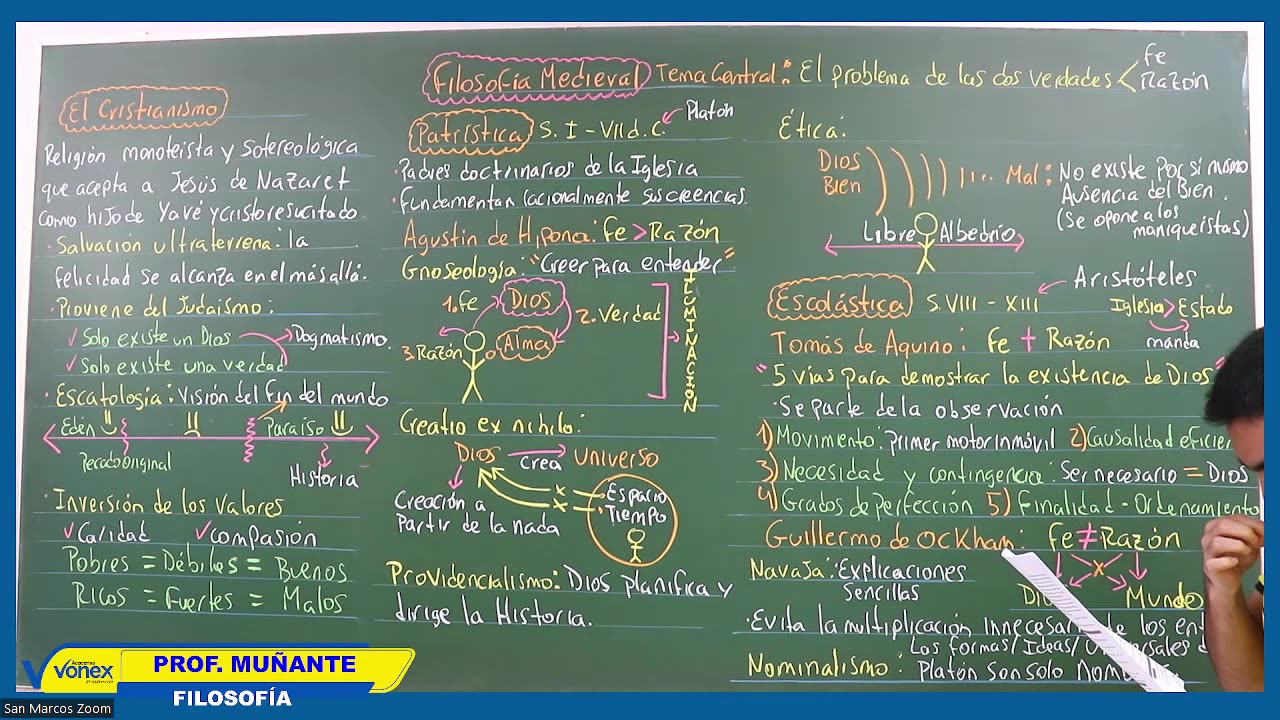 Filosofía Medieval Tema Central: El problema de las dos verdades < Fe
Razón
El Cristianismo
Religión monoteista y Sotereológica
que acepta a Jesús de Nazaret
como hijo de Yavé y cristo resucitado.
· Salvación ultraterrena: la
felicidad se alcanza en el más allá.
· Proviene del Judaísmo:
✓ Solo existe un Dios → Dogmatismo.
✓ Solo existe una verdad
· Escatología: Visión del fin del mundo
Edén Paraíso
Pecado original
Historia
· Inversión de los valores
✓ Caridad ✓ compasión
Pobres = Débiles = Buenos
Ricos = Fuertes = Malos
Patrística S. I - VII d.C. Platón
· Padres doctrinarios de la Iglesia
· Fundamentan racionalmente sus creencias.
Agustín de Hipona: Fe > Razón
Gnoseología: "Creer para entender"
1. Fe DIOS
2. Verdad
3. Razón Alma
ILUMINACIÓN
Creatio ex nihilo:
Dios crea Universo
Creación a
partir de la nada
Espacio
Tiempo
Providencialismo: Dios planifica y
dirige la Historia.
Ética:
DIOS
Bien
Mal: No existe por sí mismo
Ausencia del Bien.
(Se opone a los
maniqueístas)
Libre Albedrío
Escolástica S. VIII - XIII Aristóteles
Iglesia > Estado
manda
Tomás de Aquino: Fe + Razón
"5 vías para demostrar la existencia de Dios"
· Se parte de la observación
1) Movimiento: primer motor inmóvil 2) Causalidad
3) Necesidad y contingencia: Ser necesario = Dios
4) Grados de perfección 5) Finalidad - Ordenamiento
Guillermo de Ockham: Fe ≠ Razón
Mundo
Navaja: Explicaciones
Sencillas
· Evita la multiplicación de los
Nominalismo: Las formas/Ideas/
Platón son solo
Academia
Vonex
PROF. MUÑANTE
FILOSOFÍA
San Marcos Zoom